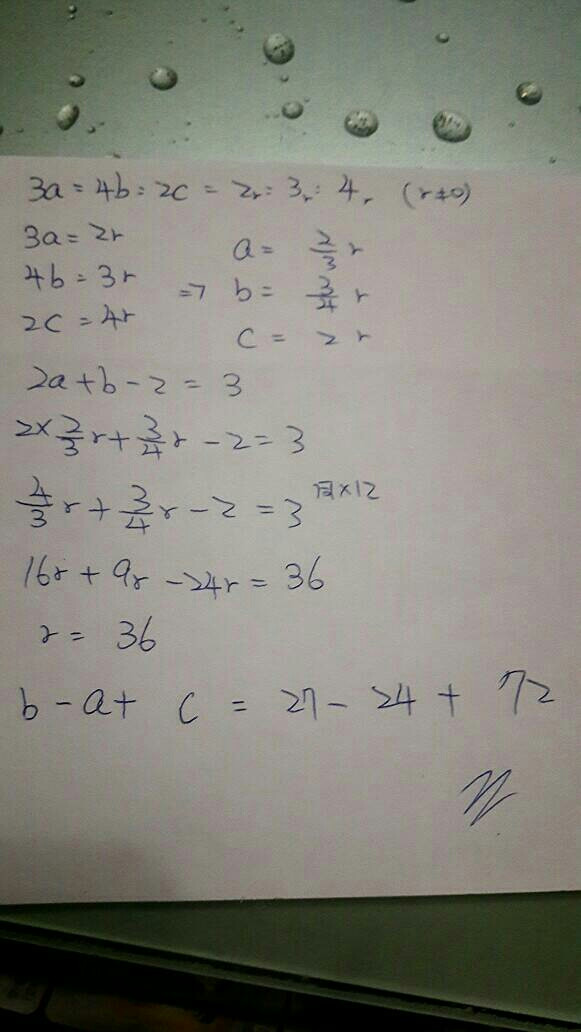 3a : 4b : 2c = 2r : 3r : 4r (r≠0)
3a = 2r a = 2/3 r
4b = 3r => b = 3/4 r
2c = 4r c = 2r
2a + b - 2 = 3
2 × 2/3 r + 3/4 r - 2 = 3
4/3 r + 3/4 r - 2 = 3 同×12
16r + 9r - 24r = 36
r = 36
b - a + c = 27 - 24 + 72